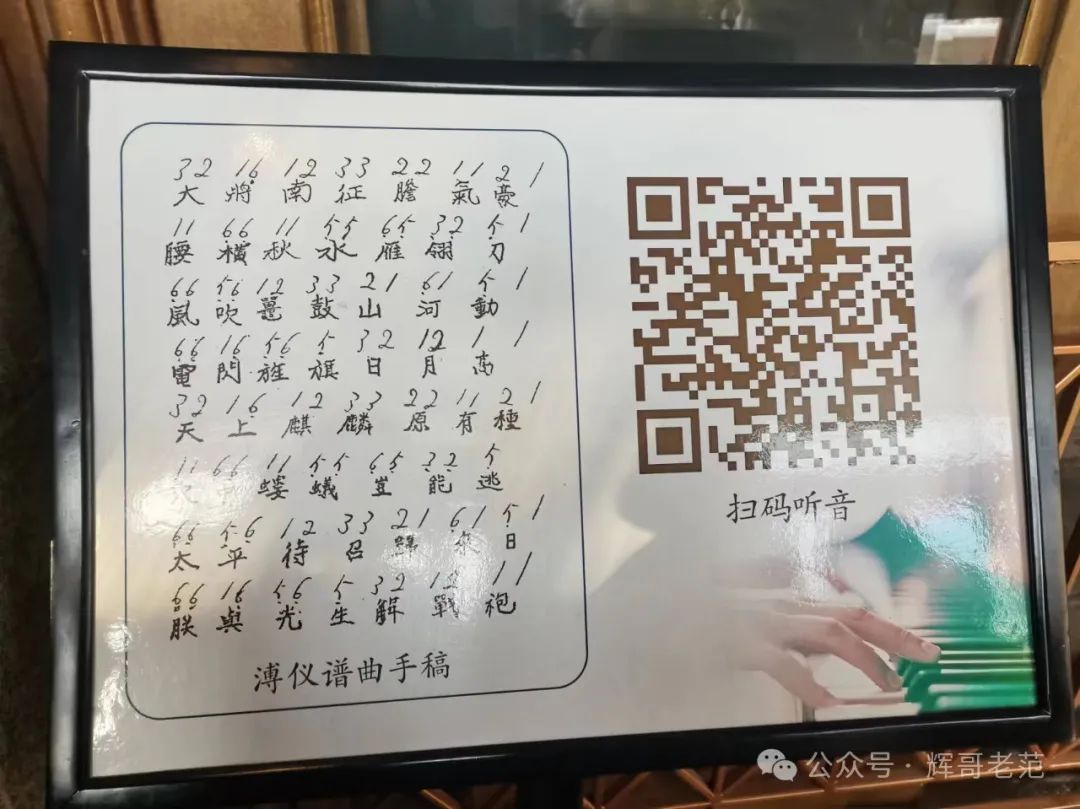 32 16 12 33 22 11 2 1
大 將 南 征 膽 氣 豪
11 66 11 55 65 32 5 1
腰 橫 秋 水 雁 翎 刀
66 56 12 33 21 61 5 1
風 吹 鼉 鼓 山 河 動
66 16 56 5 32 12 1 1
電 閃 旌 旗 日 月 高
32 16 12 33 22 11 2 1
天 上 麒 麟 原 有 種
11 66 11 55 65 32 5
螻 蟻 豈 能 逃
66 56 12 33 21 61 5 1
太 平 待 召 歸 來 日
66 16 56 5 32 12 1 1
朕 與 光 生 解 戰 袍
溥仪谱曲手稿
扫码听音
公众号·辉哥老范